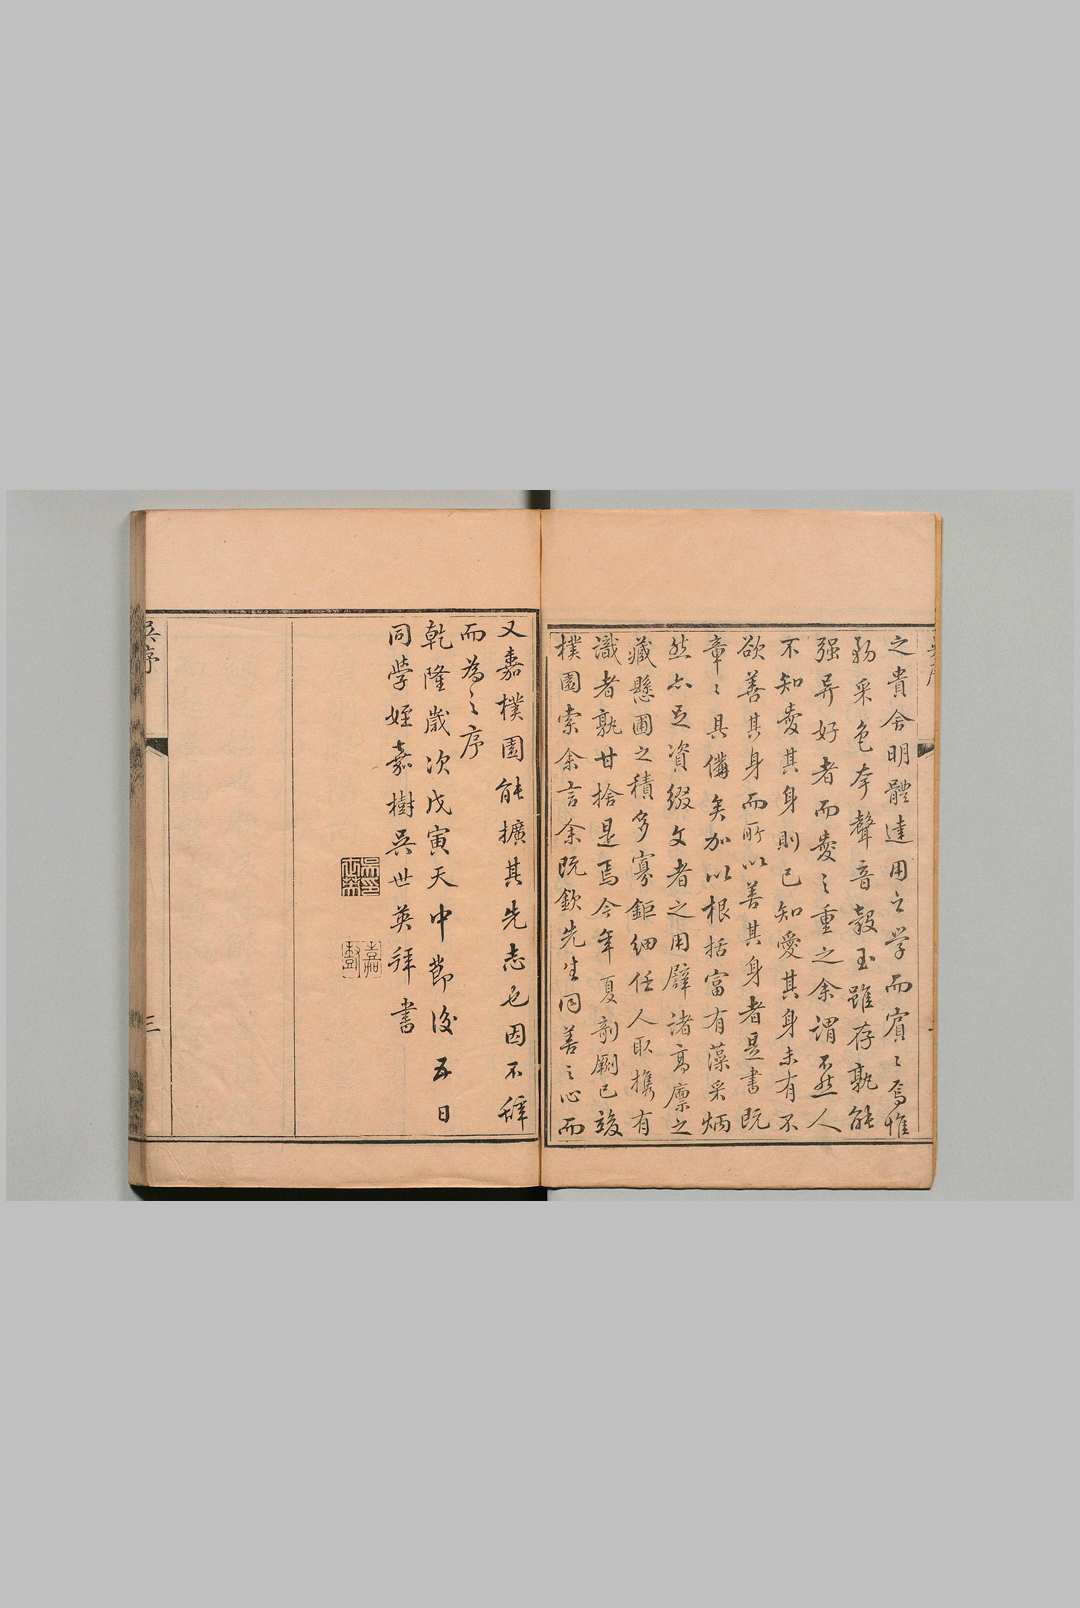 之貴舍明體達用之学而賓〻焉惟
芻采色夲聲音穀玉雖存孰能
强异好者而愛〻重之余謂不然人
不知愛其身則已知愛其身未有不
欲善其身而所以善其身者是書既
章〻具備矣加以根括富有藻采炳
然亦足資綴文者之用譬諸高廩之
藏懸圃之積多寡鉅細任人取攜有
識者孰甘捨是焉今年夏剞劂已竣
樸園索余言余既欽先生同善之心而
又嘉樸園能擴其先志也因不辭
而為之序
乾隆歲次戊寅天中節後五日
同學姪嘉樹吳世英拜書
吳序
三
嘉樹